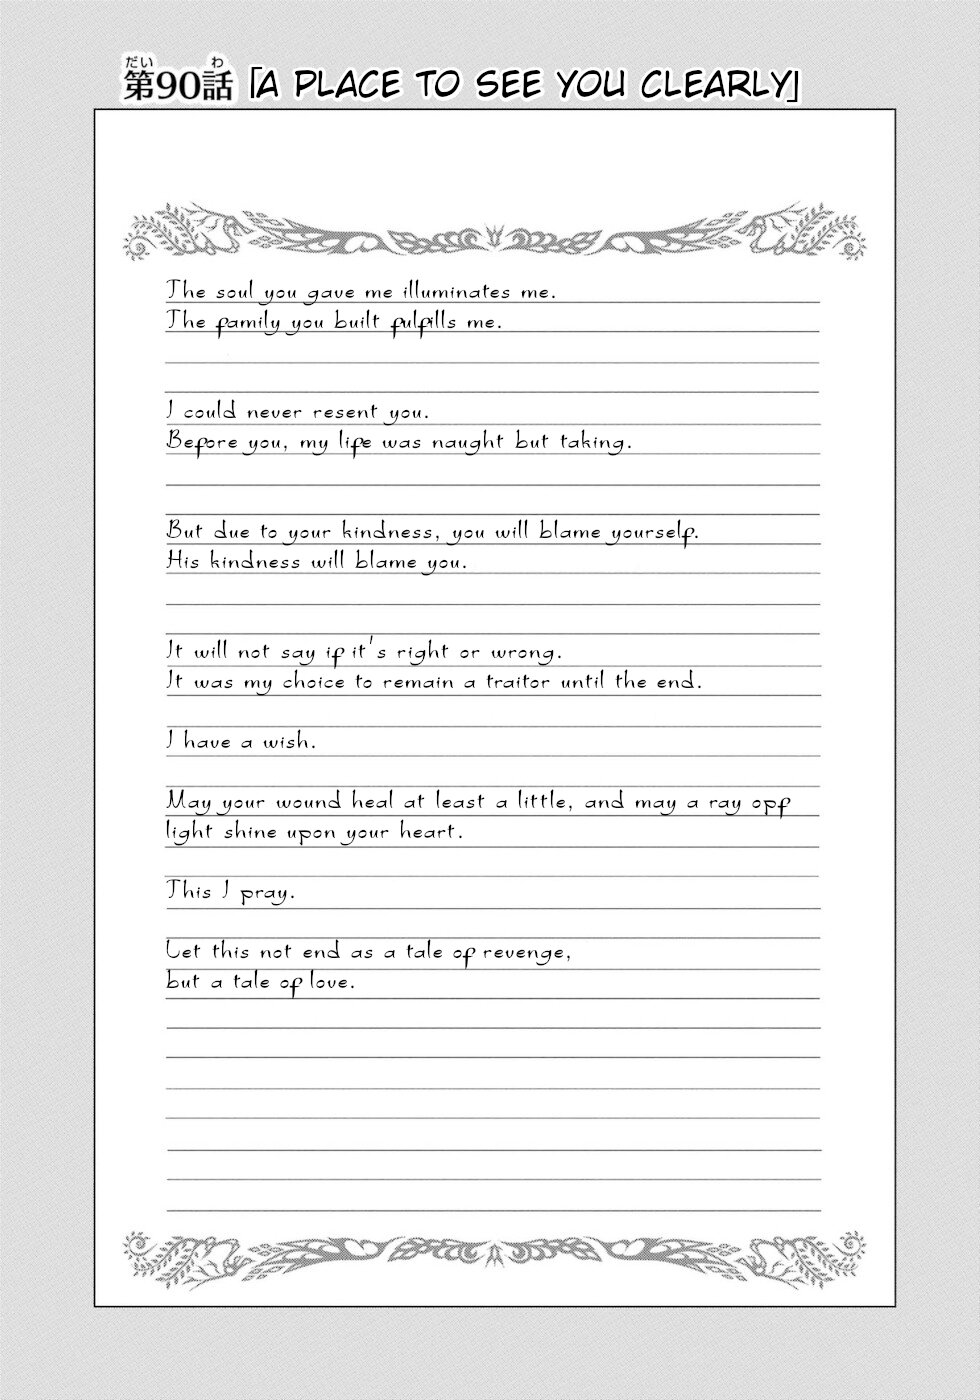 だい わ
第90話「A PLACE TO SEE YOU CLEARLY」
The soul you gave me illuminates me.
The family you built fulfills me.
I could never resent you.
Before you, my life was naught but taking.
But due to your kindness, you will blame yourself.
His kindness will blame you.
It will not say if it's right or wrong.
It was my choice to remain a traitor until the end.
I have a wish.
May your wound heal at least a little, and may a ray opf
light shine upon your heart.
This I pray.
Let this not end as a tale of revenge,
but a tale of love.